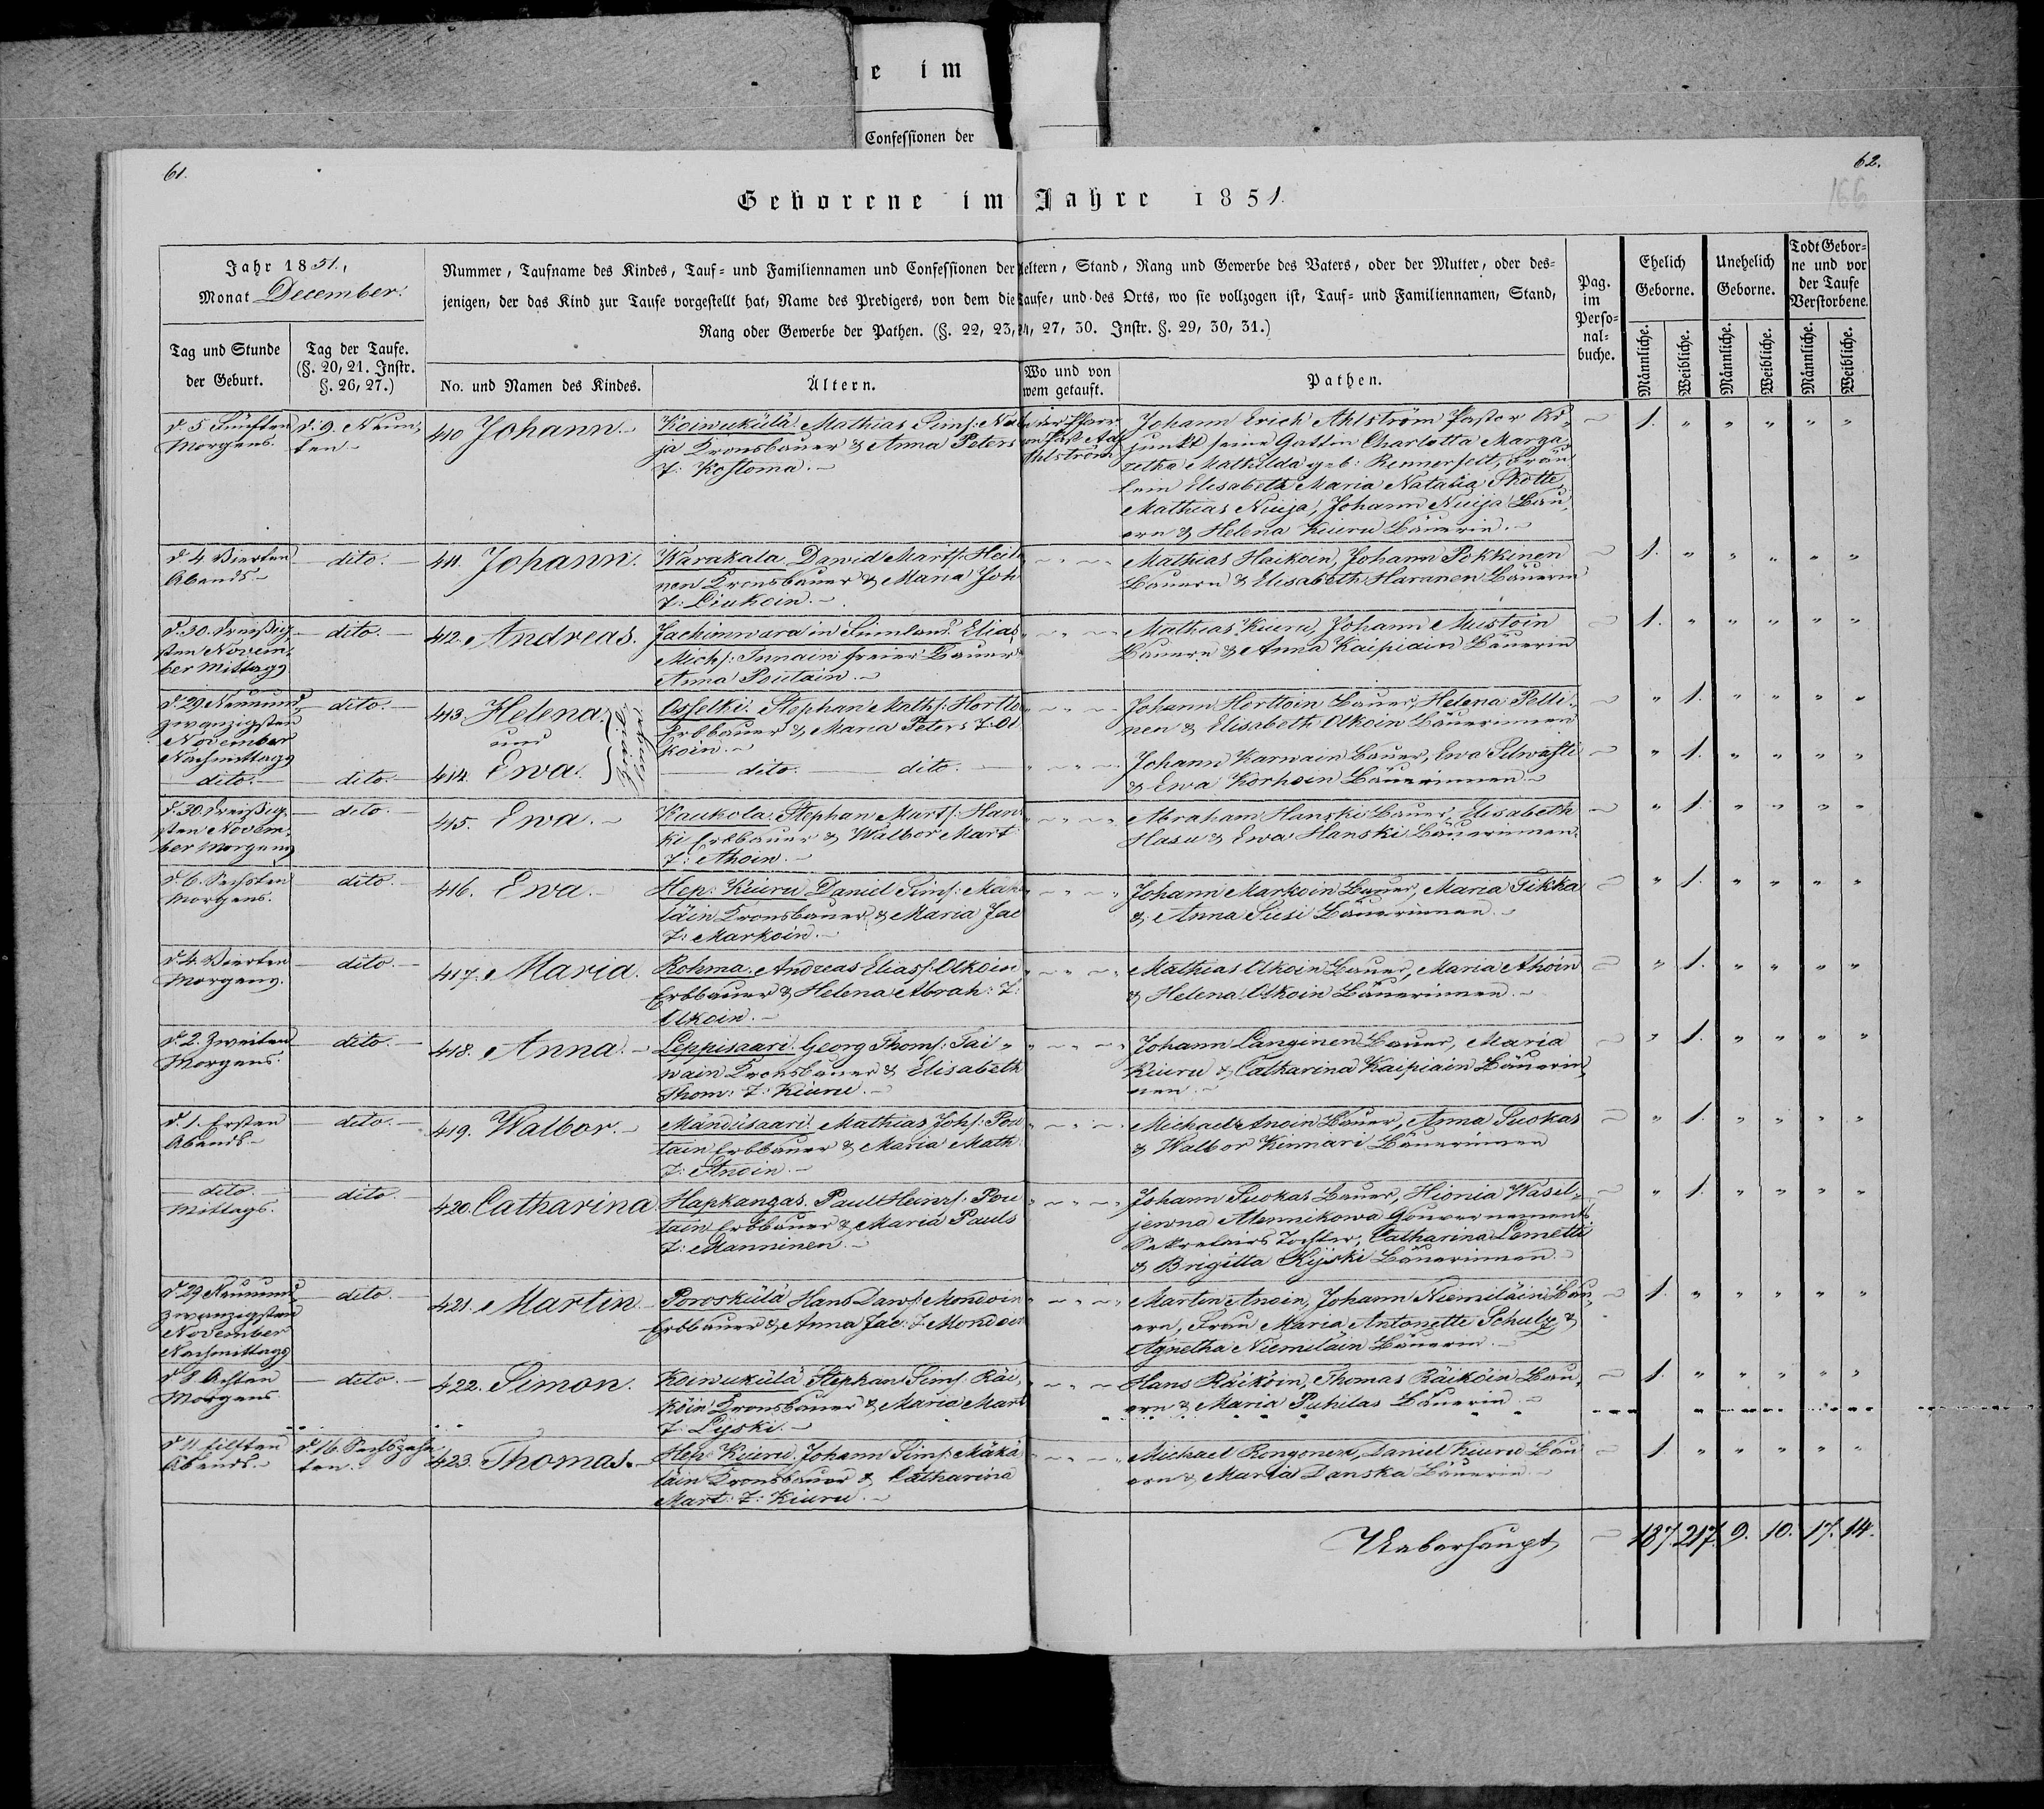 ne im
Confessionen der
61.
62.
166
Geborene im Jahre 1851.
Jahr 1851.,
Monat December.
Nummer, Taufname des Kindes, Tauf- und Familiennamen und Confessionen der Aeltern, Stand, Rang und Gewerbe des Vaters, oder der Mutter, oder des-
jenigen, der das Kind zur Taufe vorgestellt hat, Name des Predigers, von dem die Taufe, und des Orts, wo sie vollzogen ist, Tauf- und Familiennamen, Stand,
Rang oder Gewerbe der Pathen. (§. 22, 23, 24, 27, 30. Instr. §. 29, 30, 31.)
Tag und Stunde
der Geburt.
Tag der Taufe.
(§. 20, 21. Instr.
§. 26, 27.)
No. und Namen des Kindes.
Ältern.
Wo und von
wem getauft.
Pathen.
Pag.
im
Perso-
nal-
buche.
Ehelich
Geborne.
Unehelich
Geborne.
Todt Gebor-
ne und vor
der Taufe
Verstorbene.
Männliche.
Weibliche.
Männliche.
Weibliche.
Männliche.
Weibliche.
d. 5 Fünften
Morgens.
d. 9. Neun-
ten
410 Johann.
Koiwukülä. Mathias Sims:
ja Kronsbauer & Anna Peters
T: Kostoma.
Ahlström
Johann Erich Ahlström Pastor Ad-
junkt seine Gattin Charlotta Marga-
retha Mathilda geb: Rennerfelt, Fräu
lein Elisabeth Maria Natalia Skotte,
Mathias Niuja, Johann Niuja Bau-
ern & Helena Kiuru Bäuerin.
1. " " " " "
d. 4 Vierten
Abends
dito.
411. Johann.
Karakala Dawid Marts:
nen Kronsbauer & Maria Joh
T: Liukoin.
Mathias Haikoin, Johann Pokkinen
Bauern & Elisabeth Haranen Bäuerin
1. " " " " "
d. 30. Dreißig-
sten Novem-
ber Mittags
dito.
412. Andreas.
Jachimwara in Finnland. Elias
Mich: Innain freier Bauer
Anna Poutain.
Mathias Kiuru, Johann Mustoin
Bauern & Anna Kaipiain Bäuerin
1. " " " " "
d. 29 Neunund
zwanzigsten
November
Nachmittags
dito.
413. Helena.
und
Osselki. Stephan Maths:
Erbbauer & Maria Peters T: Ol
koin.
Johann Horttoin Bauer, Helena Pelli-
nen & Elisabeth Olkoin Bäuerinnen
" 1. " " " "
dito.
dito.
414. Ewa.
dito. dito.
Johann Karwain Bauer, Ewa
& Ewa Korhoin Bäuerinnen
" 1. " " " "
d. 30. Dreißig-
sten Novem-
ber Morgens
dito
415. Ewa.
Kaukola. Stephan Marts: Hans
ki Erbbauer & Walbor Mart
T: Ahoin.
Abraham Hanski Bauer, Elisabeth
Hasu & Ewa Hanski Bäuerinnen.
" 1. " " " "
d. 6. Sechsten
Morgens.
dito.
416. Ewa.
Hep: Kiuru Daniel Sims:
läin Kronsbauer & Maria Jac
T: Markoin.
Johann Markoin Bauer, Maria Tikka
& Anna Siesi Bäuerinnen.
" 1. " " " "
d. 4. Vierten
Morgens.
dito.
417. Maria.
Rohma. Andreas Elias: Olkoin
Erbbauer & Helena Abrah: T:
Olkoin.
Mathias Olkoin Bauer, Maria Ahoin
& Helena Olkoin Bäuerinnen.
" 1. " " " "
d. 2. Zweiten
Morgens.
dito.
418. Anna.
Leppisaari. Georg Thoms: Tai-
wain Kronsbauer & Elisabeth
Thom: T: Kiuru.
Johann Langinen Bauer, Maria
Kiuru & Catharina Kaipiain Bäuerin-
nen.
" 1. " " " "
d. 1. Ersten
Abends.
dito.
419. Walbor.
Mändüsaari. Mathias Johs: Pou
tain Erbbauer & Maria Math
T: Anoin.
Michael Anoin Bauer, Anna Suokas
& Walbor Kinnari Bäuerinnen
" 1. " " " "
dito.
Mittags.
dito
420. Catharina.
Hapkangas. Paul Heinrs: Pou
tain Erbbauer & Maria Pauls
T: Manninen.
Johann Suokas Bauer, Hionia Wasil-
jewna Alennikowa Gouvernements
Sekretairs Tochter, Catharina Lemetti
& Brigitta Kijski Bäuerinnen.
" 1. " " " "
d. 29 Neunund
zwanzigsten
November
Nachmittags
dito.
421. Martin.
Poroskülä Hans Daws: Mondoin
Erbbauer & Anna Jac: T: Mondoin
Martin Anoin, Johann Niemiläin Bau-
ern, Frau Maria Antonette Schulz &
Agnetha Niemiläin Bäuerin.
1. " " " " "
d. 8 Achten
Morgens
dito.
422. Simon.
Koiwukülä Stephan Sims: Räi-
köin Kronsbauer & Maria Mart
T: Lijski.
Hans Räiköin, Thomas Räiköin Bau-
ern & Maria Puhilas Bäuerin.
1. " " " " "
d. 11 Eilften
Abends.
d. 16. Sechszehn
ten.
423. Thomas.
Hep: Kiuru. Johann Sims: Mäkä
läin Kronsbauer & Catharina
Mart: T: Kiuru.
Michael Rongonen, Daniel Kiuru Bau
ern & Maria Danska Bäuerin.
1. " " " " "
Ueberhaupt
187. 217. 9. 10. 17. 14.